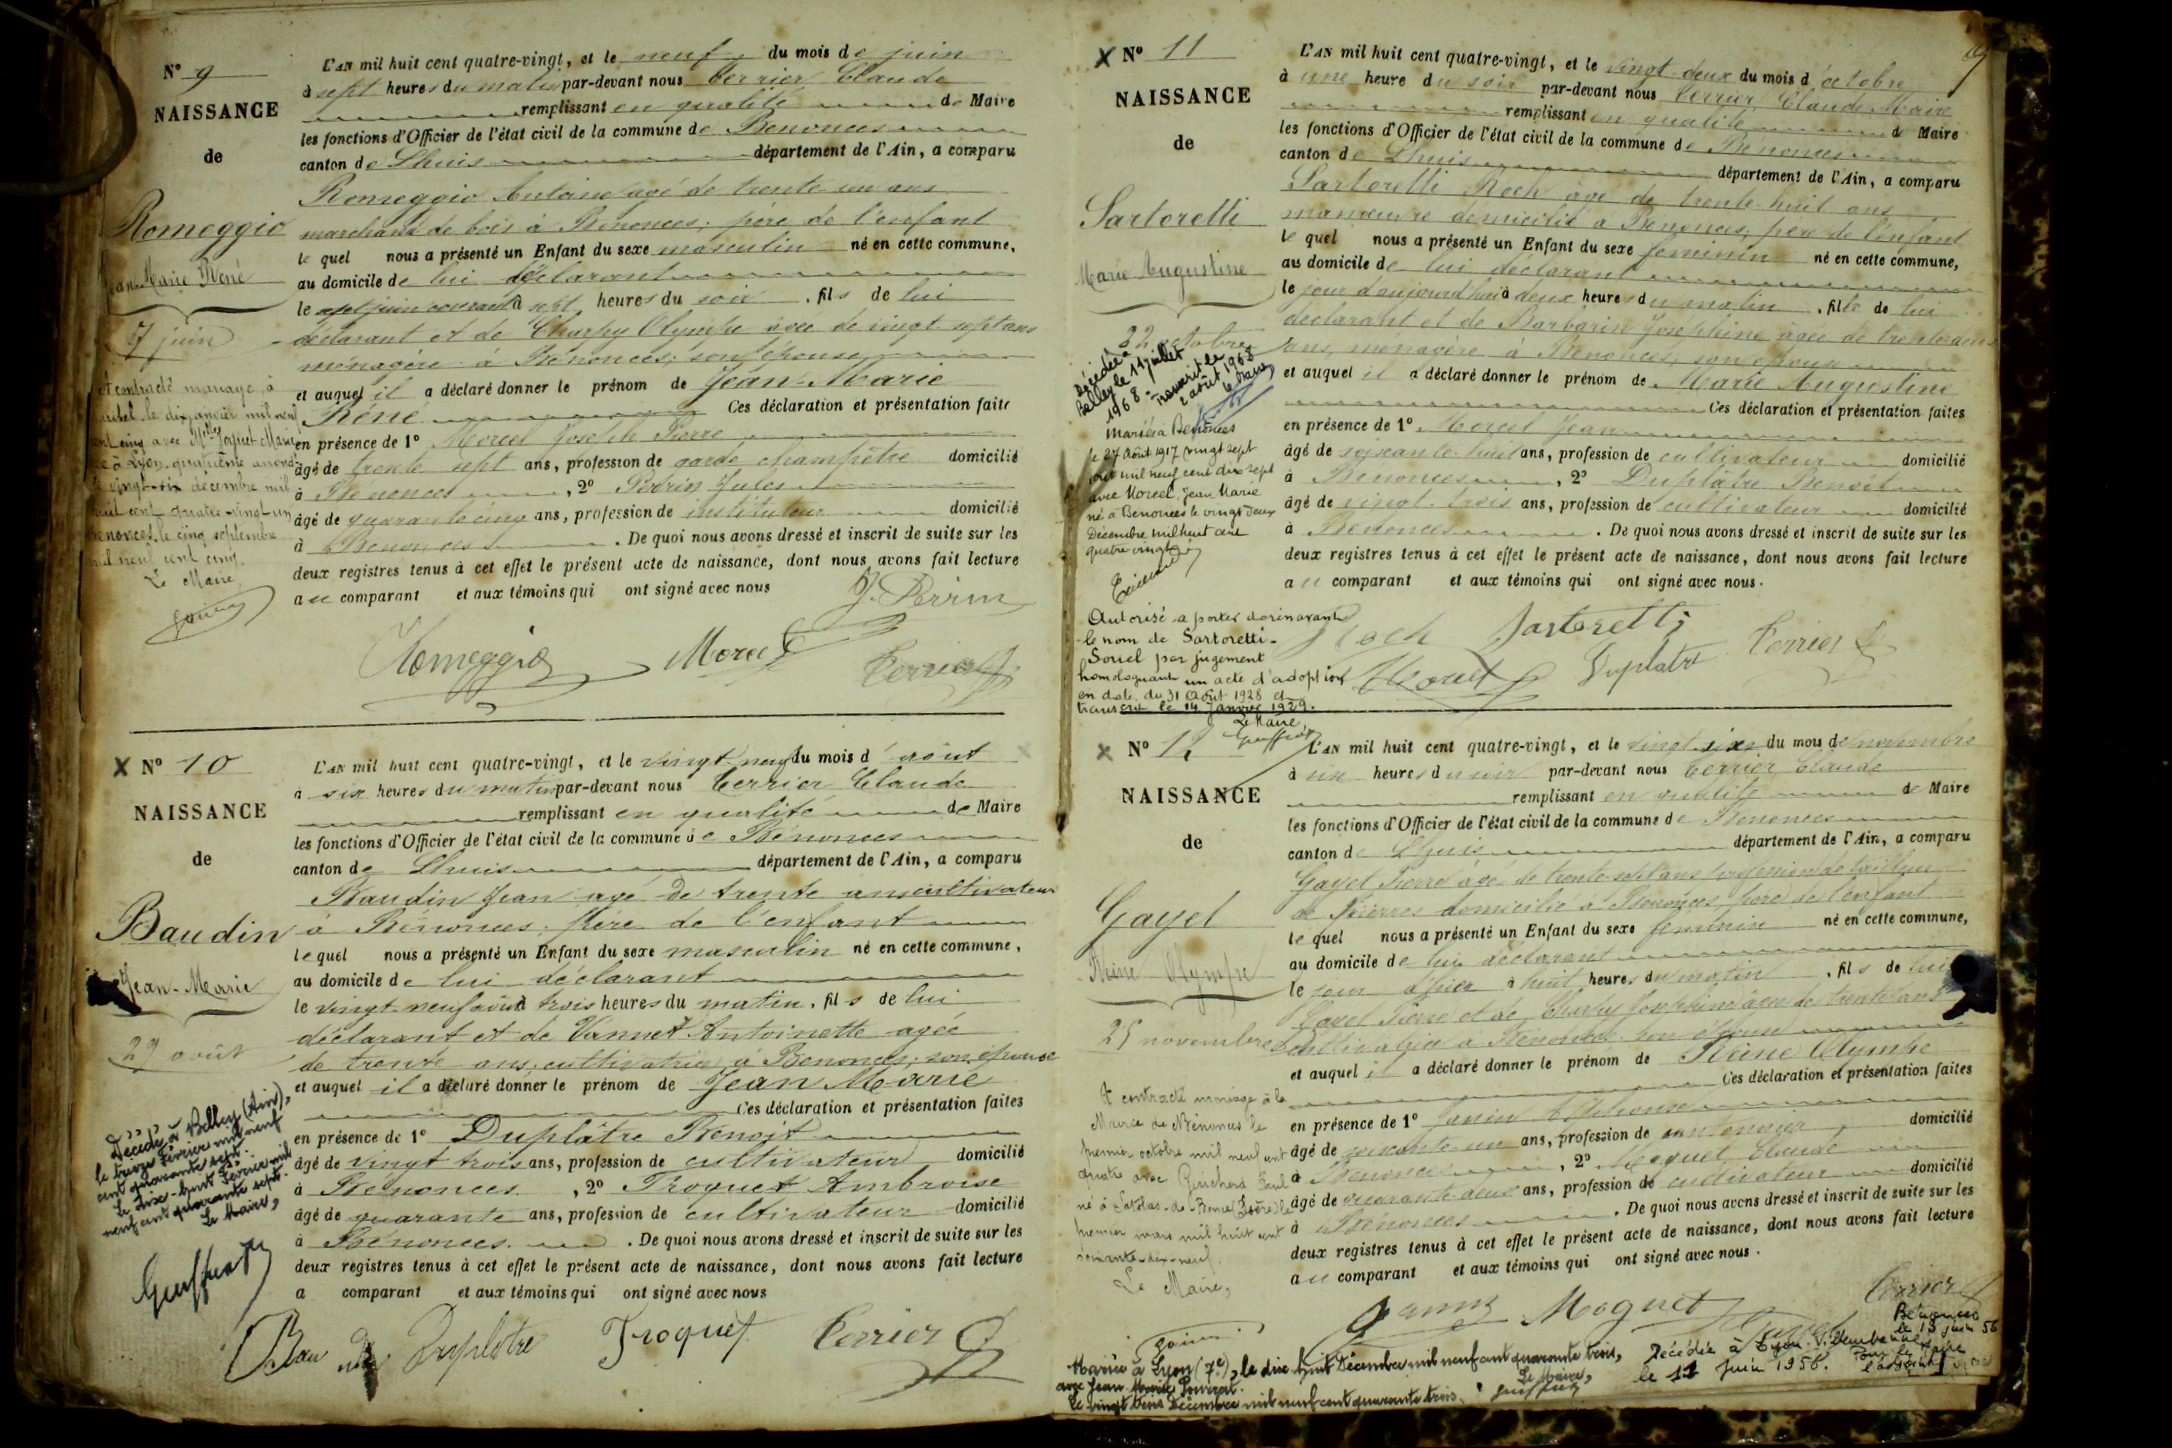 N° 9
NAISSANCE
de
Romeggio
Jean Marie Réné
7 juin
A contracté mariage à
le dix janvier mil neuf
cent cinq avec Melle Joquet Marie
née à Lyon quatrième arrond
le vingt-six décembre mil
huit cent quatre-vingt un
Benonces, le cinq septembre
mil neuf cent cinq
Le Maire,
L'AN mil huit cent quatre-vingt, et le neuf du mois de juin
à sept heures du matin par-devant nous Cerrier Claude
remplissant en qualité de Maire
les fonctions d'Officier de l'état civil de la commune de Benonces
canton de Lhuis département de l'Ain, a comparu
Romeggio Antoine agé de trente un ans
marchand de bois à Bénonces, père de l'enfant
le quel nous a présenté un Enfant du sexe masculin né en cette commune,
au domicile de lui déclarant
le sept juin courant à sept heures du soir, fils de lui
déclarant et de Charpy Olympe agée de vingt sept ans
ménagère à Bénonces, son épouse
et auquel il a déclaré donner le prénom de Jean-Marie
Réné Ces déclaration et présentation faites
en présence de 1° Morcel Joseph Pierre
âgé de trente sept ans, profession de garde champêtre domicilié
à Bénonces, 2° Perrin Jules
âgé de quarante cinq ans, profession de instituteur domicilié
à Bénonces. De quoi nous avons dressé et inscrit de suite sur les
deux registres tenus à cet effet le présent acte de naissance, dont nous avons fait lecture
au comparant et aux témoins qui ont signé avec nous
J. Perrin
Romeggio Morcel Cerrier
X N° 10
NAISSANCE
de
Baudin
Jean-Marie
29 août
Décédé à Belley (Ain),
le treize Février mil neuf
cent quarante sept.
Le dix-huit Février mil
neuf cent quarante sept.
Le Maire,
L'AN mil huit cent quatre-vingt, et le vingt neuf du mois d'août
à six heures du matin par-devant nous Cerrier Claude
remplissant en qualité de Maire
les fonctions d'Officier de l'état civil de la commune de Bénonces
canton de Lhuis département de l'Ain, a comparu
Baudin Jean agé de trente ans cultivateur
à Bénonces, père de l'enfant
le quel nous a présenté un Enfant du sexe masculin né en cette commune,
au domicile de lui déclarant
le vingt-neuf août à trois heures du matin, fils de lui
déclarant et de Vannet Antoinette agée
de trente ans, cultivatrice à Benonces, son épouse
et auquel il a déclaré donner le prénom de Jean Marie
Ces déclaration et présentation faites
en présence de 1° Duplâtre Benoit
âgé de vingt trois ans, profession de cultivateur domicilié
à Bénonces, 2° Troquet Ambroise
âgé de quarante ans, profession de cultivateur domicilié
à Bénonces. De quoi nous avons dressé et inscrit de suite sur les
deux registres tenus à cet effet le présent acte de naissance, dont nous avons fait lecture
a comparant et aux témoins qui ont signé avec nous
Duplâtre Troquet Cerrier
X N° 11
NAISSANCE
de
Sartoretti
Marie Augustine
22 octobre
Décédée à
Belley le 11 juillet
1968. transcrit le
2 août 1968
le Maire
Mariée à Benonces
le 27 Août 1917 (vingt sept
août mil neuf cent dix sept
avec Morcel Jean Marie
né à Benonces le vingt deux
Décembre mil huit cent
quatre vingt
Autorisé a porter dorénavant
le nom de Sartoretti-
Soriel par jugement
homologuant un acte d'adoption
en date du 31 Août 1928 et
transcrit le 14 Janvier 1929.
Le Maire,
L'AN mil huit cent quatre-vingt, et le vingt deux du mois d'octobre
à une heure du soir par-devant nous Cerrier Claude Maire
remplissant en qualité de Maire
les fonctions d'Officier de l'état civil de la commune de Bénonces
canton de Lhuis département de l'Ain, a comparu
Sartoretti Roch agé de trente huit ans
manœuvre domicilié à Benonces, père de l'enfant
le quel nous a présenté un Enfant du sexe feminin né en cette commune,
au domicile de lui déclarant
le jour d'aujourd'hui à deux heures du matin, fille de lui
déclarant et de Barbarin Joséphine agée de trente
ans, ménagère à Benonces, son epouse
et auquel il a déclaré donner le prénom de Marie Augustine
Ces déclaration et présentation faites
en présence de 1° Morcel Jean
âgé de soixante huit ans, profession de cultivateur domicilié
à Benonces, 2° Duplâtre Benoit
âgé de vingt trois ans, profession de cultivateur domicilié
à Benonces. De quoi nous avons dressé et inscrit de suite sur les
deux registres tenus à cet effet le présent acte de naissance, dont nous avons fait lecture
au comparant et aux témoins qui ont signé avec nous.
Roch Sartoretti Cerrier
Morcel Duplatre
X N° 12
NAISSANCE
de
Gayet
Reine Olympe
25 novembre
A contracté mariage à la
Mairie de Bénonces le
premier octobre mil neuf cent
quatre avec Guichard Paul
né à (Isère) le
premier mars mil huit cent
soixante-dix-neuf.
Le Maire,
L'AN mil huit cent quatre-vingt, et le vingt six du mois de novembre
à une heure du soir par-devant nous Cerrier Claude
remplissant en qualité de Maire
les fonctions d'Officier de l'état civil de la commune de Benonces
canton de Lhuis département de l'Ain, a comparu
Gayet Pierre agé de trente sept ans profession de tailleur
de Pierres domicilié à Bénonces père de l'enfant
le quel nous a présenté un Enfant du sexe féminin né en cette commune,
au domicile de lui déclarant
le jour d'hier à huit heures du matin, fils de lui
Gayet Pierre et de Charpy Joséphine agée de trente ans
cultivatrice à Bénonces son épouse
et auquel il a déclaré donner le prénom de Reine Olympe
Ces déclaration et présentation faites
en présence de 1° Janin Alphonse
âgé de soixante un ans, profession de domicilié
à Bénonces, 2° Moquet Claude
âgé de quarante deux ans, profession de cultivateur domicilié
à Bénonces. De quoi nous avons dressé et inscrit de suite sur les
deux registres tenus à cet effet le présent acte de naissance, dont nous avons fait lecture
au comparant et aux témoins qui ont signé avec nous.
Janin Moquet Gayet Cerrier
Mariée à Lyon (7e), le dix huit Décembre mil neuf cent quarante trois,
avec Jean Marie
Le vingt trois Décembre mil neuf cent quarante trois.
Le Maire,
Décédée à Lyon
le 11 Juin 1956.
Bénonces
le 13 juin 56
Pour le Maire
l'adjoint